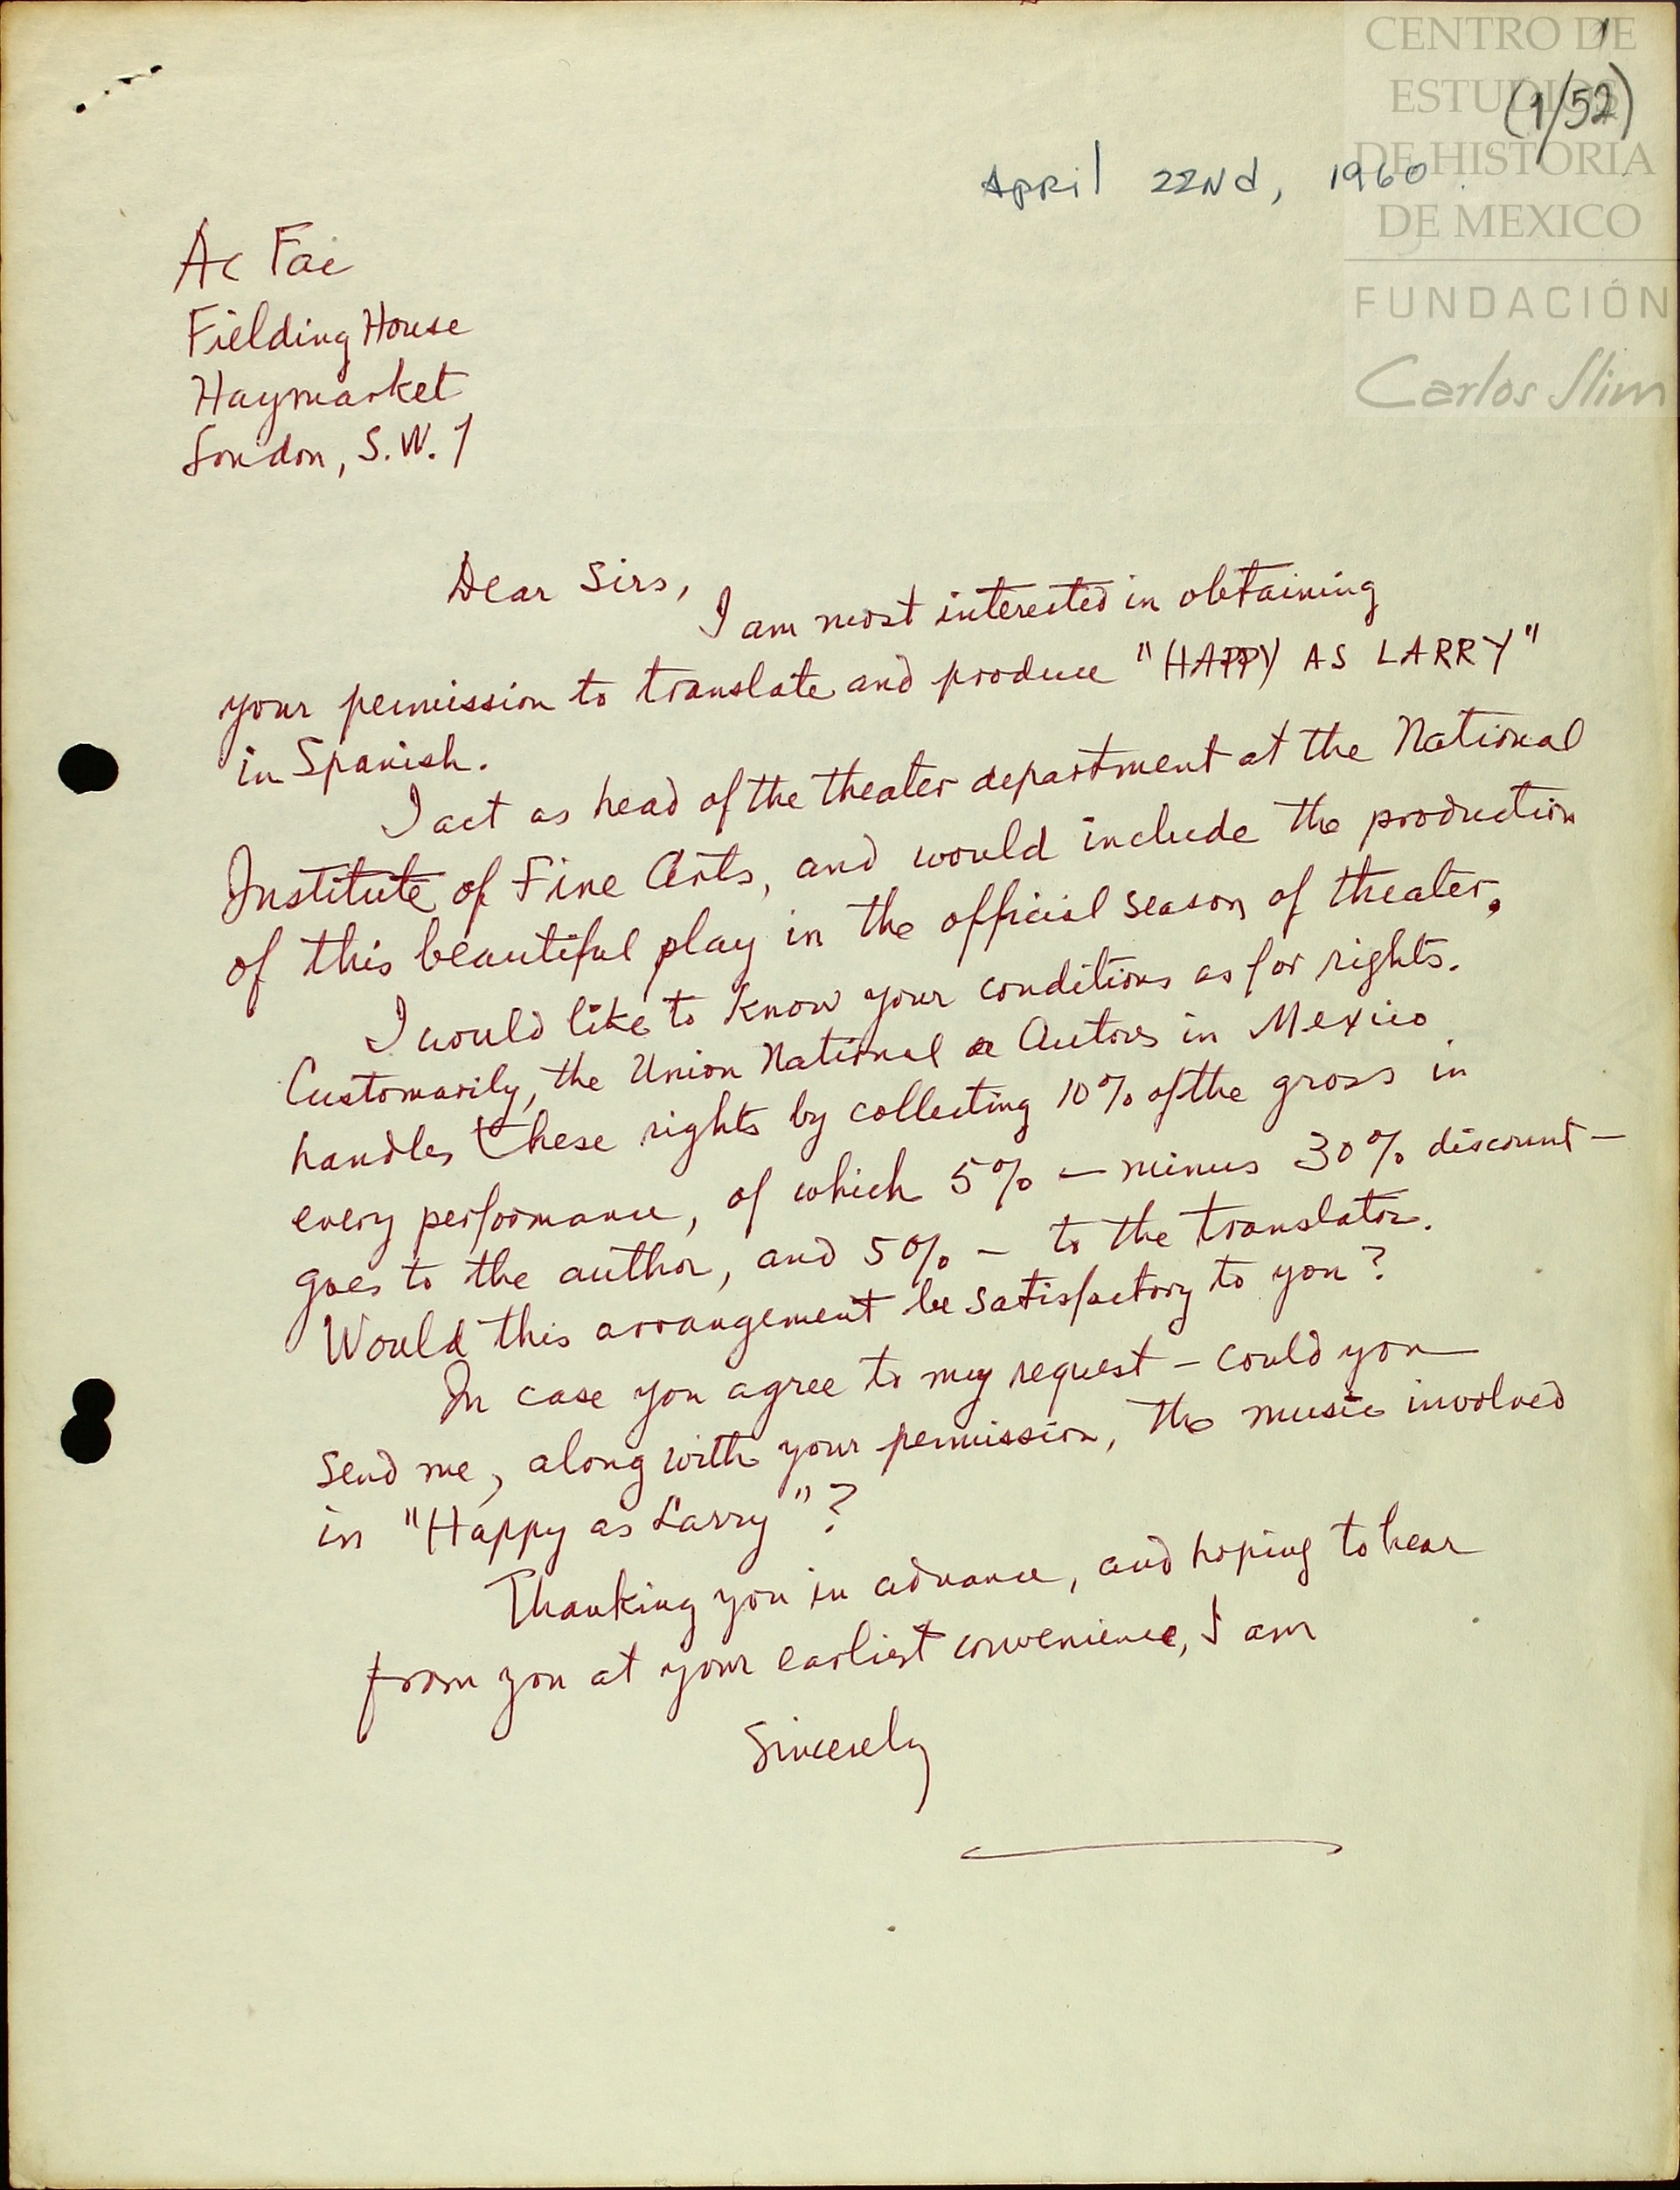 1
(1/52)
CENTRO DE
ESTUDIOS
DE HISTORIA
DE MEXICO
FUNDACIÓN
Carlos Slim
April 22nd, 1960.
Ac Fai
Fielding House
Haymarket
London, S.W. 1
Dear Sirs,
I am most interested in obtaining
your permission to translate and produce "HAPPY AS LARRY"
in Spanish.
I act as head of the theater department at the National
Institute of Fine Arts, and would include the production
of this beautiful play in the official season of theater.
I would like to know your conditions as for rights.
Customarily, the Union National de Autores in Mexico
handles these rights by collecting 10% of the gross in
every performance, of which 5% — minus 30% discount —
goes to the author, and 50% — to the translator.
Would this arrangement be satisfactory to you?
In case you agree to my request — could you
send me, along with your permission, the music involved
in "Happy as Larry"?
Thanking you in advance, and hoping to hear
from you at your earliest convenience, I am
Sincerely